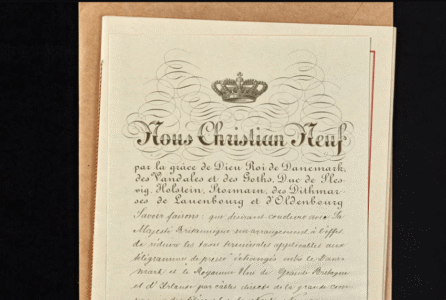 Nous Christian Neuf
par la grâce de Dieu Roi de Danemark,
des Vandales et des Goths, Duc de Sles-
vig, Holstein, Stormarn, des Dithmar-
ses de Lauenbourg et d'Oldenbourg
Savoir faisons: que désirant conclure avec Sa
Majesté Britannique un arrangement à l'effet
de réduire les taxes terminales applicables aux
télégrammes de presse échangés entre le Dane-
mark et le Royaume Uni de Grande Bretagne
et d'Irlande par câble direct de la grande com-